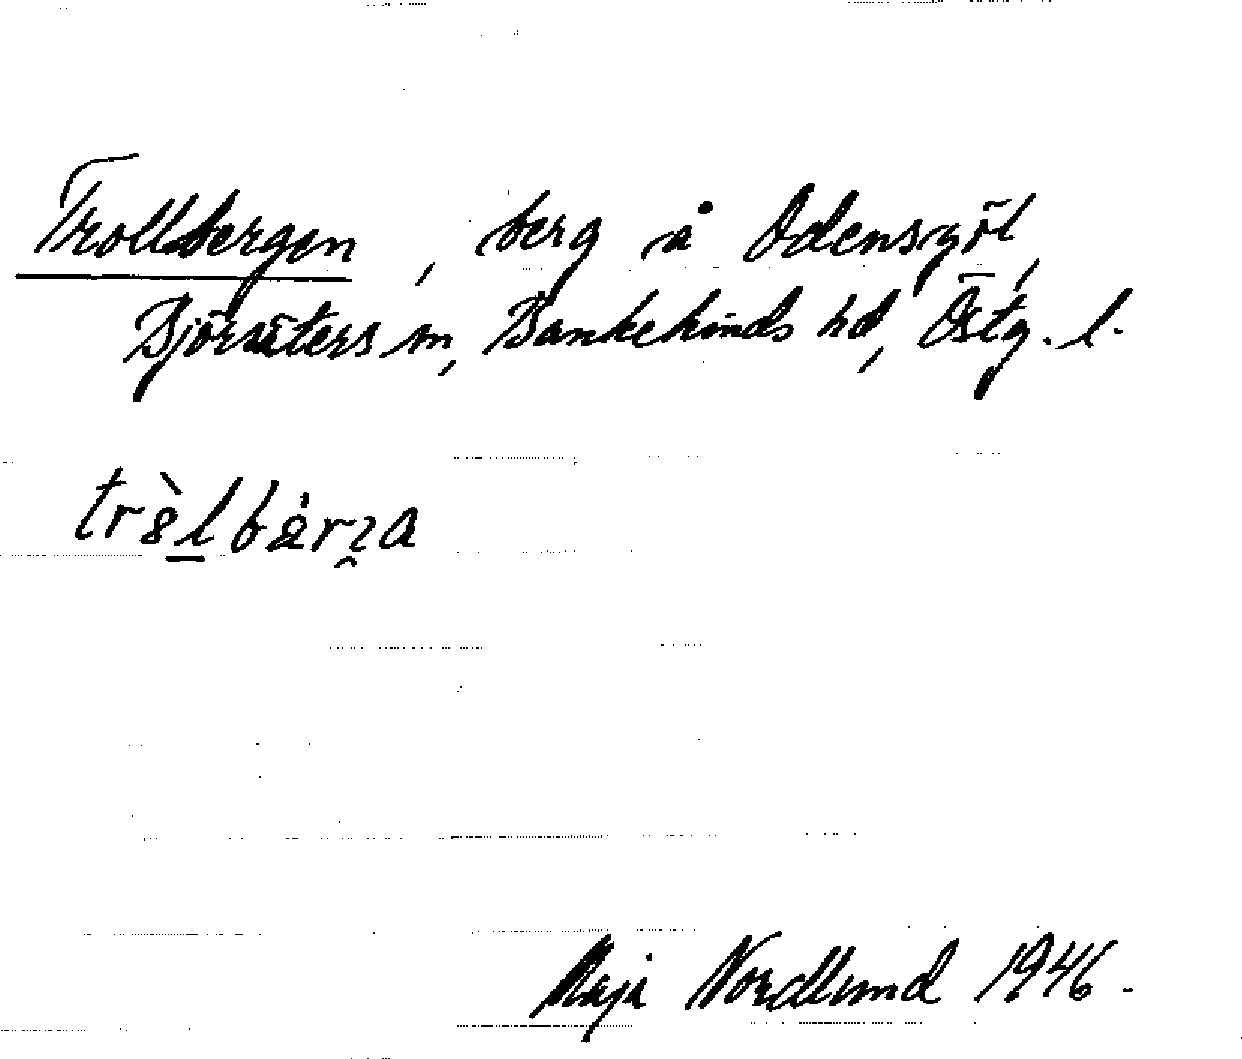 Trollbergen, berg å Odensgöl,
Björsäters sn, Bankekinds hd, Östg. l.
Maja Nordlund 1946.